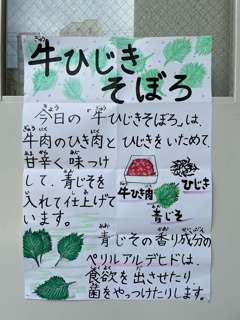 牛ひじき
そぼろ
今日の「牛ひじきそぼろ」は、
牛肉のひき肉と
ひじきをいためて、
甘辛く味つけ
して、青じそを
入れて仕上げて
います。
牛ひき肉
ひじき
青じそ
青じその香り成分の
ペリルアルデヒドは、
食欲を出させたり、
菌をやっつけたりします。